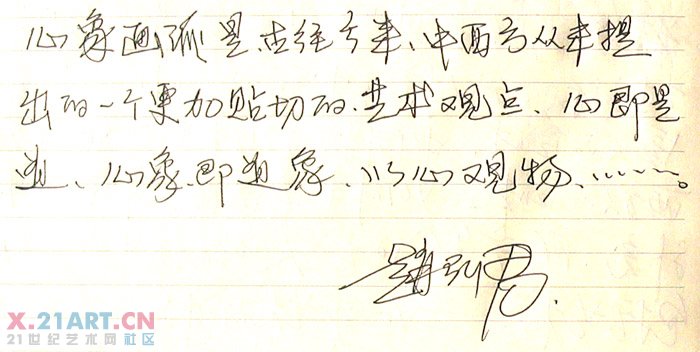 心象画派是古往今来、中西方从未提
出的一个更加贴切的艺术观点、心即是
道、心象即道象、以心观物、……。
X.21ART.CN
21世纪艺术网社区